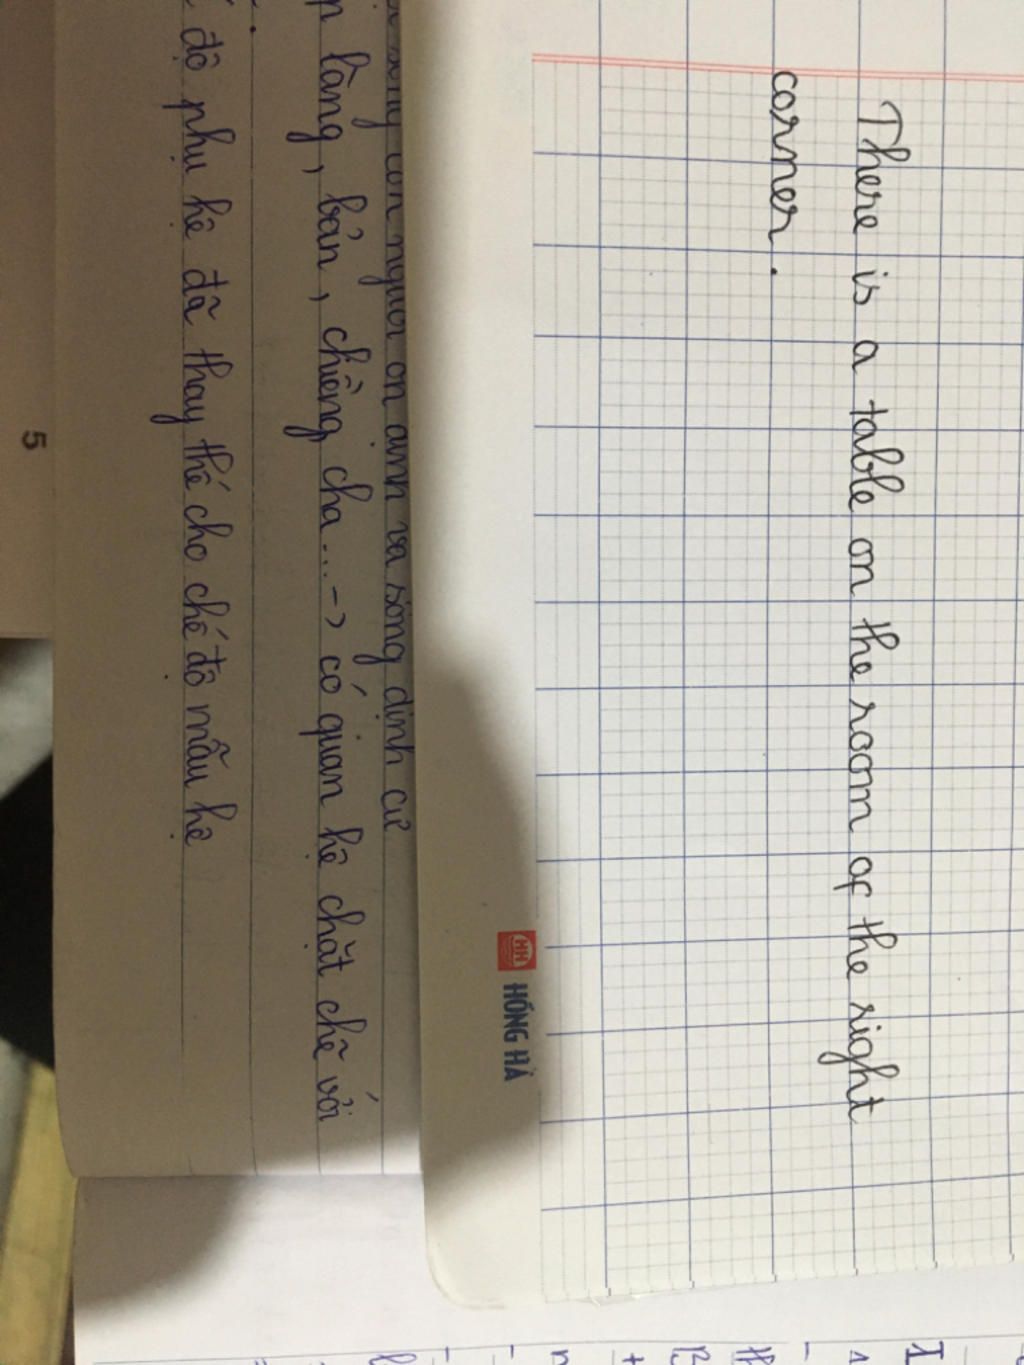 There is a table on the room of the right
corner.
HỒNG HÀ
con người ổn định và sống định cư
làng, bản, chiềng, cha... -> có quan hệ chặt chẽ với
độ phụ hệ đã thay thế cho chế độ mẫu hệ
5